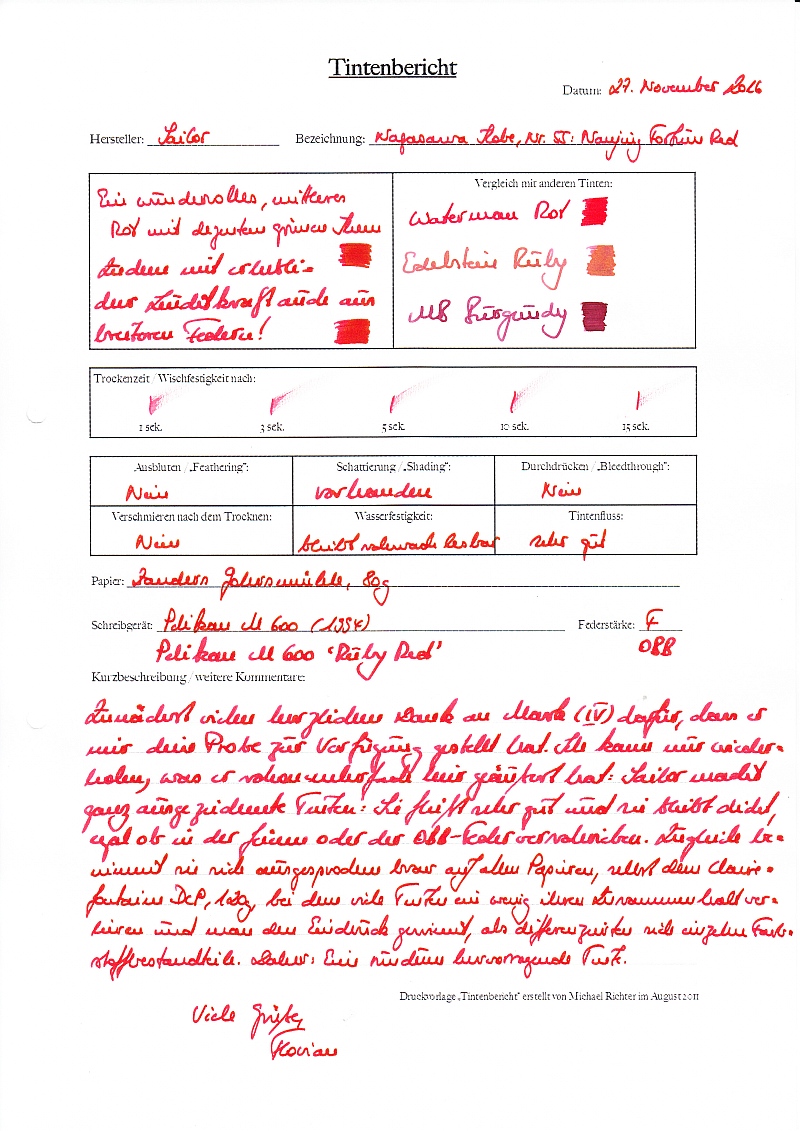 Tintenbericht
Datum: 27. November 2016
Hersteller: Sailor Bezeichnung: Nagasawa Kobe, Nr. 55: Nanjing Red
Ein wundervolles, mittleres
Rot mit dezentem grünen
mit
der Leuchtkraft auch aus
breiteren Federn!
Vergleich mit anderen Tinten:
Waterman Rot
Edelstein Ruby
MB Burgundy
Trockenzeit / Wischfestigkeit nach:
1 sek. 3 sek. 5 sek. 10 sek. 15 sek.
Ausbluten / „Feathering“: Schattierung / „Shading“: Durchdrücken / „Bleedthrough“:
Nein vorhanden Nein
Verschmieren nach dem Trocknen: Wasserfestigkeit: Tintenfluss:
Nein bleibt schwach lesbar sehr gut
Papier: Zanders Gohrsmühle, 80g
Schreibgerät: Pelikan M 600 Federstärke: F
Pelikan M 600 'Ruby Red' OBB
Kurzbeschreibung / weitere Kommentare:
Zunächst vielen herzlichen Dank an (IV) dafür, dass er
mir diese Probe zur Verfügung gestellt hat. Ich kann nur wieder-
holen, was er schon hier geäußert hat: Sailor macht
ganz ausgezeichnete Tinten! Sie fließt sehr gut und sie bleibt dicht,
egal ob in der feinen oder der OBB-Feder verschrieben. Zugleich be-
nimmt sie sich ausgesprochen brav auf allen Papieren, selbst dem Claire-
fontaine DCP, 120g, bei dem viele Tinten ein wenig ihren Zusammenhalt ver-
lieren und man den Eindruck gewinnt, als differenzierten sich einzelne Farb-
stoffbestandteile. Daher: Eine hervorragende Tinte.
Druckvorlage „Tintenbericht“ erstellt von Michael Richter im August 2011
Viele Grüße,
Florian